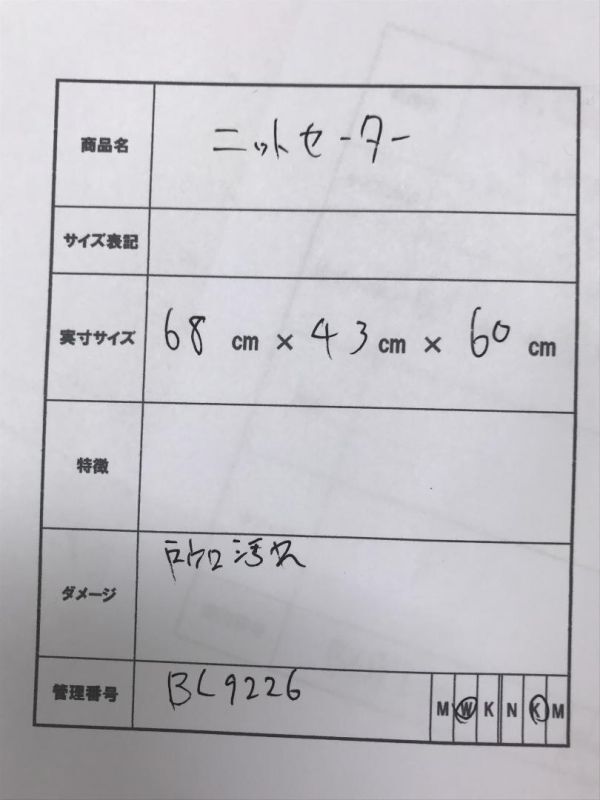 商品名 ニットセーター
サイズ表記
実寸サイズ 68 cm × 43 cm × 60 cm
特徴
ダメージ 汚れ
管理番号 BL9226 M W K N K M